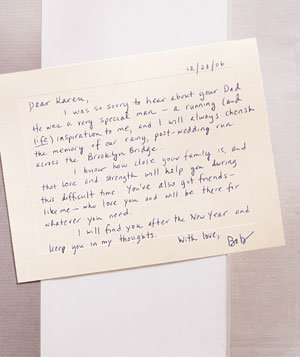 12/28/06
Dear Karen,
I was so sorry to hear about your Dad
He was a very special man - a running (and
life) inspiration to me, and I will always cherish
the memory of our rainy, post-wedding run
across the Brooklyn Bridge.
I know how close your family is, and
that love and strength will help you during
this difficult time. You've also got friends-
like me - who love you and will be there for
whatever you need.
I will find you after the New Year and
keep you in my thoughts.
With love,
Bob